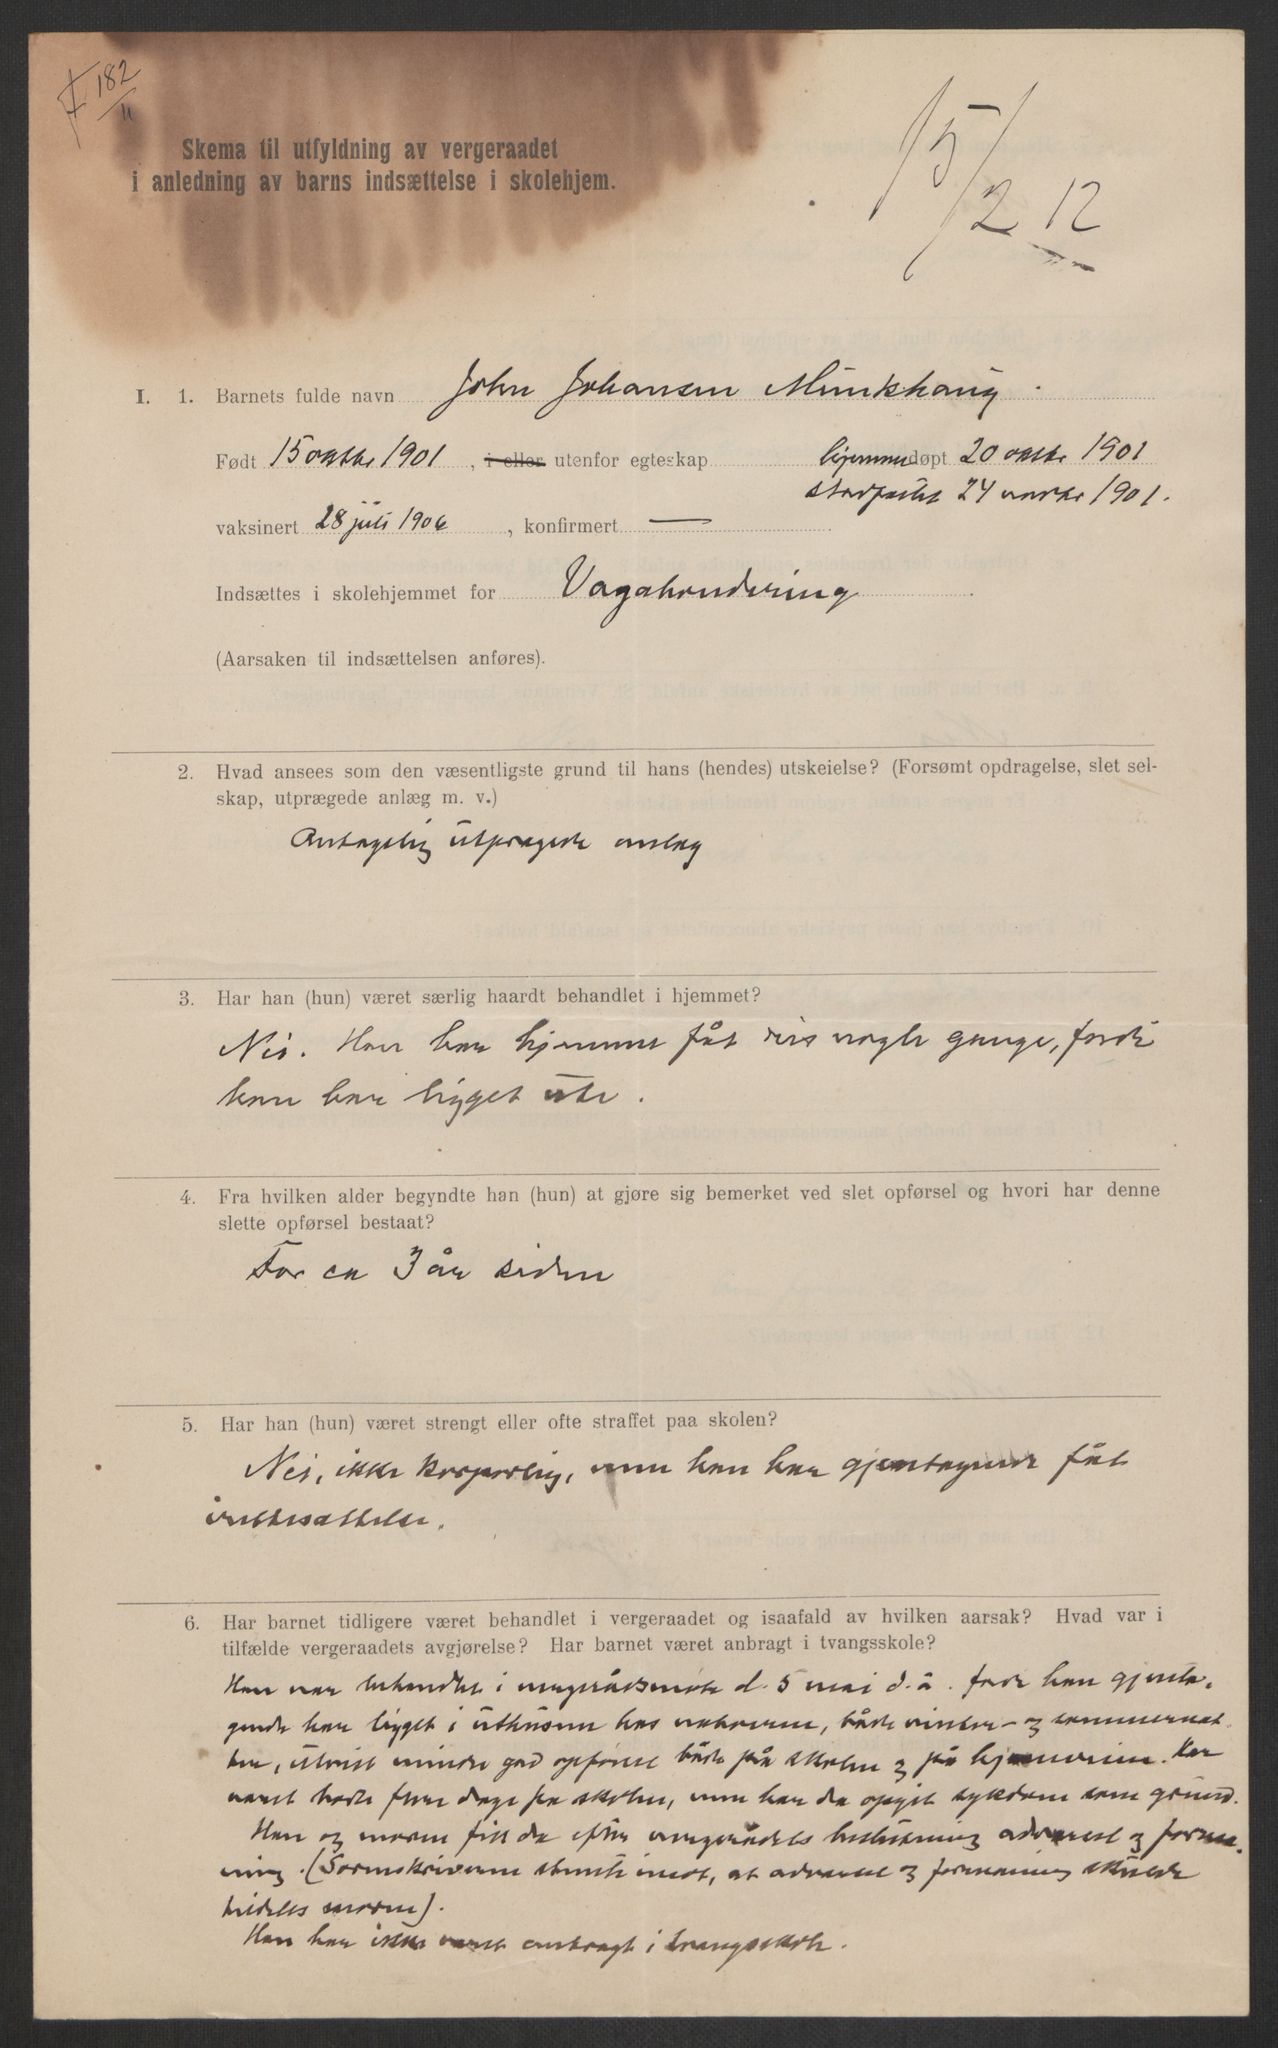 182
11
15/2 12
Skema til utfyldning av vergeraadet
i anledning av barns indsættelse i skolehjem.
I. 1. Barnets fulde navn John Johansen Munkhaug.
Født 15 oktbr 1901, i eller utenfor egteskap hjemmedøpt 20 oktbr 1901
stadfæstet 24 novbr 1901.
vaksinert 28 juli 1906, konfirmert —
Indsættes i skolehjemmet for Vagabondering
(Aarsaken til indsættelsen anføres).
2. Hvad ansees som den væsentligste grund til hans (hendes) utskeielse? (Forsømt opdragelse, slet sel-
skap, utprægede anlæg m. v.)
Antagelig utprægede anlæg
3. Har han (hun) været særlig haardt behandlet i hjemmet?
Nei. Han har hjemme fåt ris nogle gange, fordi
han har ligget ute.
4. Fra hvilken alder begyndte han (hun) at gjøre sig bemerket ved slet opførsel og hvori har denne
slette opførsel bestaat?
For ca 3 år siden
5. Har han (hun) været strengt eller ofte straffet paa skolen?
Nei, ikke korporlig, men han har gjentagende fåt
irettesættelse.
6. Har barnet tidligere været behandlet i vergeraadet og isaafald av hvilken aarsak? Hvad var i
tilfælde vergeraadets avgjørelse? Har barnet været anbragt i tvangsskole?
Han var behandlet i vergerådsmøte d. 5 mai d. å. fordi han gjenta-
gende har ligget i uthusene hos naboerne, både vinter- og sommernæt
ter, utvist mindre god opførsel både på skolen og på hjemveien. Har
været borte flere dage fra skolen, men har da opgit sykdom som grund.
Han og moren fik da efter vergerådets beslutning advarsel og forma-
ning. (Sorenskriveren stemte imot, at advarsel og formaning skulde
tildeles moren).
Han har ikke været anbragt i tvangsskole.